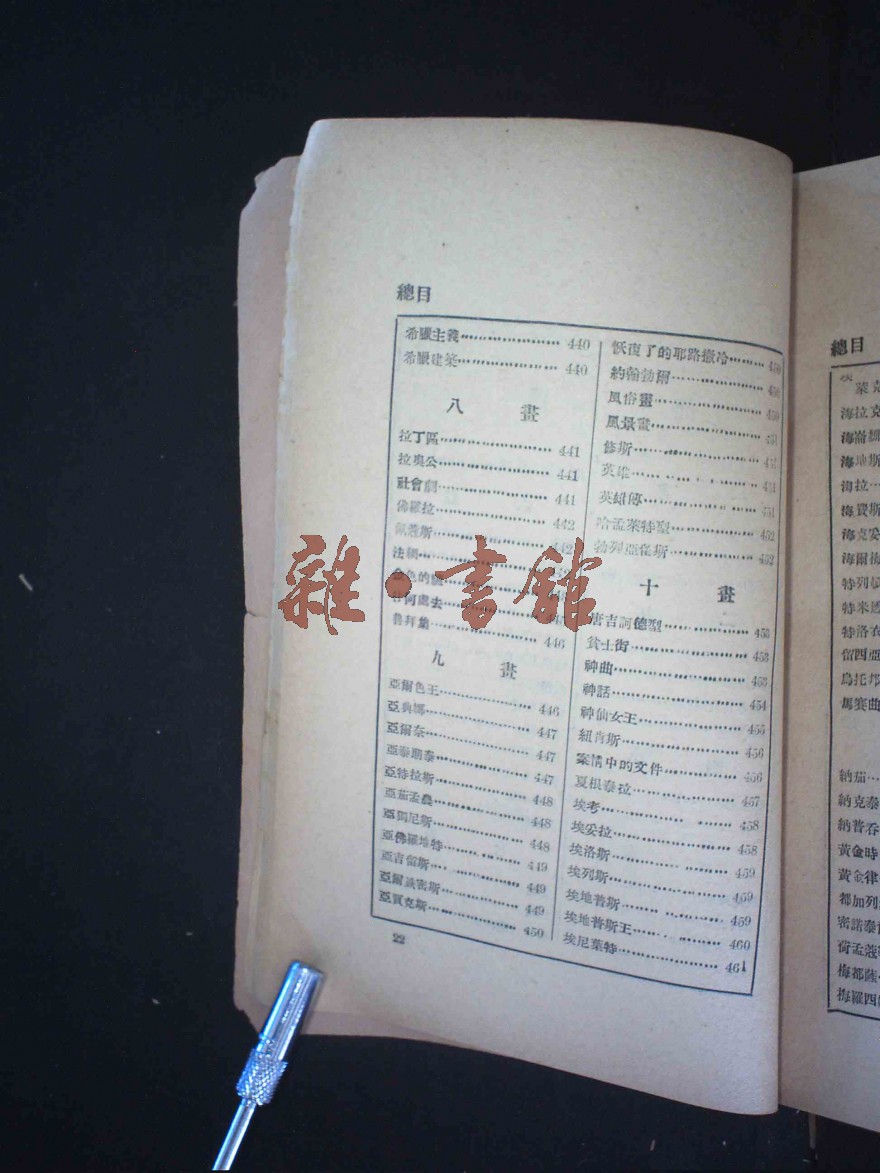 總目
希臘主義 440
希臘建築 440
八畫
拉丁區 441
拉奧公 441
社會劇 441
佛羅拉 442
442
法
色的
何處去
魯拜集 446
九畫
亞爾色王 446
亞典娜 447
亞爾泰 447
亞泰朗泰 447
亞特拉斯 448
亞茄孟農 448
亞圖尼斯 448
亞佛羅地特 449
亞吉留斯 449
亞爾諦密斯 449
亞賈克斯 450
恢復了的耶路撒冷 450
約翰勃爾 450
風俗畫 450
風景畫 451
修斯 451
英雄 451
英雄傳 451
哈孟萊特型 452
勃列亞 斯 452
十畫
唐吉訶德型 453
貧士街 453
神曲 453
神話 454
神仙女王 455
紐肯斯 456
案情中的文件 456
夏根泰拉 457
埃考 458
埃妥拉 458
埃洛斯 459
埃列斯 459
埃地普斯 459
埃地普斯王 460
埃尼葉特 461
22
雜·書館
總目
海拉克
海
海地斯
海拉
海克
海爾
特列
特米
特洛
留西亞
烏托邦
馬賽曲
納茄
納克泰
納普
黃金時
黃金律
都加列
密諾泰
荷孟
梅都薩
梅羅四